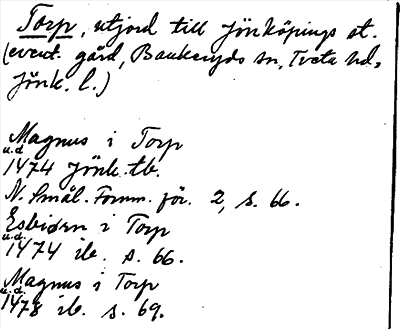 Torp, utjord till Jönköpings st.
(event. gård, Bankeryds sn, Tveta hd,
Jönk. l.)
Magnus i Torp
u.d.
1474 Jönk. tb.
N. Smål. Fornm. för. 2, s. 66.
Esbiørn i Torp
u.d.
1474 ib. s. 66.
Magnus i Torp
u.d.
1478 ib. s. 69.